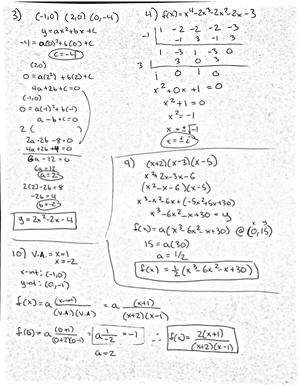 3) (-1,0) (2,0) (0,-4)
y=ax²+bx+c
-4=a(0)²+b(0)+c
c=-4
(2,0)
0=a(2)²+b(2)+c
4a+2b+c=0
(-1,0)
0=a(-1)²+b(-1)
a-b+c=0
2(        )
2a-2b-8=0
6a-12=0
6a=12
a=2
2(2)-2b=8
-2b=4
b=-2
y=2x²-2x-4
4) f(x)=x⁴-2x³-2x²-2x-3
-1 | 1 -2 -2 -2 -3
-1 3 -1 3
1 -3 1 -3 0
3 | 3 0 3
1 0 1 0
x²+0x+1=0
x²+1=0
x²=-1
x=±√-1
x=±i
9) (x+2)(x-3)(x-5)
(x²-x-6)(x-5)
x³-6x²-x+30=y
f(x)=a(x³-6x²-x+30) @ (0,15)
x y
15=a(30)
a=1/2
f(x)=½(x³-6x²-x+30)
10) V.A.=x=1
x=-2
x-int: (-1,0)
y-int: (0,-1)
f(x)=a (x-int)/(V.A)(V.A) = a (x+1)/(x+2)(x-1)
f(0)=a (0+1)/(0+2)(0-1) = a 1/-2 =-1 ∴ f(x)= 2(x+1)/(x+2)(x-1)
a=2